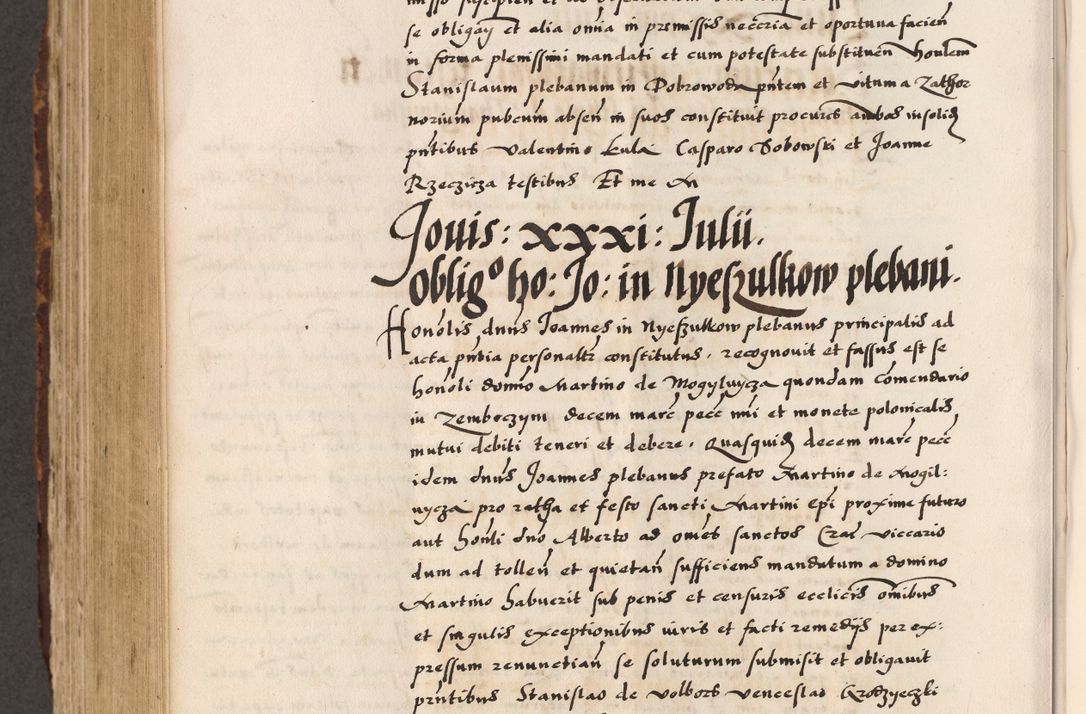 se obligañ et alia om̃ia in premissis neccr̃ia et oportuna facieñ
in forma plenissimi mandati et cum potestate substitueñ honlem
Stanislaum plebanum in Dobrowoda pñtem et vitum a Zathor
norium pubcum abseñ in suos constituit procurẽs ambos insolid
pñtibus Valentino kula Casparo Sobowski et Joanne
Rzeczicza testibus Et me M
Jouis: xxxi: Julii.
obligᵒ ho: Jo: in Nyeszulkow plebani.
Honol̃is dñus Joannes in Nyeszulkow plebanus principalis ad
acta pñtia personalr̃ constitutus, recognouit et fassus est se
hoñoli domño Martino de Mogylnycza quondam Com̃endario
in Zemboczym decem marc̃ pecc̃ nũi et monete polonicalis
mutui debiti teneri et debere. Quasquid decem marc̃ pecc̃
idem dñus Joannes plebanus prefato Martino de Mogil:
nycza pro ratha et festo sancti Martini epĩ proxime futuro
aut hoñli dño Alberto ad oṁes sanctos Crac̃ viccario
dum ad tolleñ et quietañ sufficiens mandatum a domino
Martino habuerit sub penis et censuris ecclicis om̃ibus
et singulis exceptionibus iuris et facti remedijs per ex:
pressum renunctiañ se soluturum submisit et obligauit
prñtibus Stanislao de Volbors Venceslao Grodzyeczki